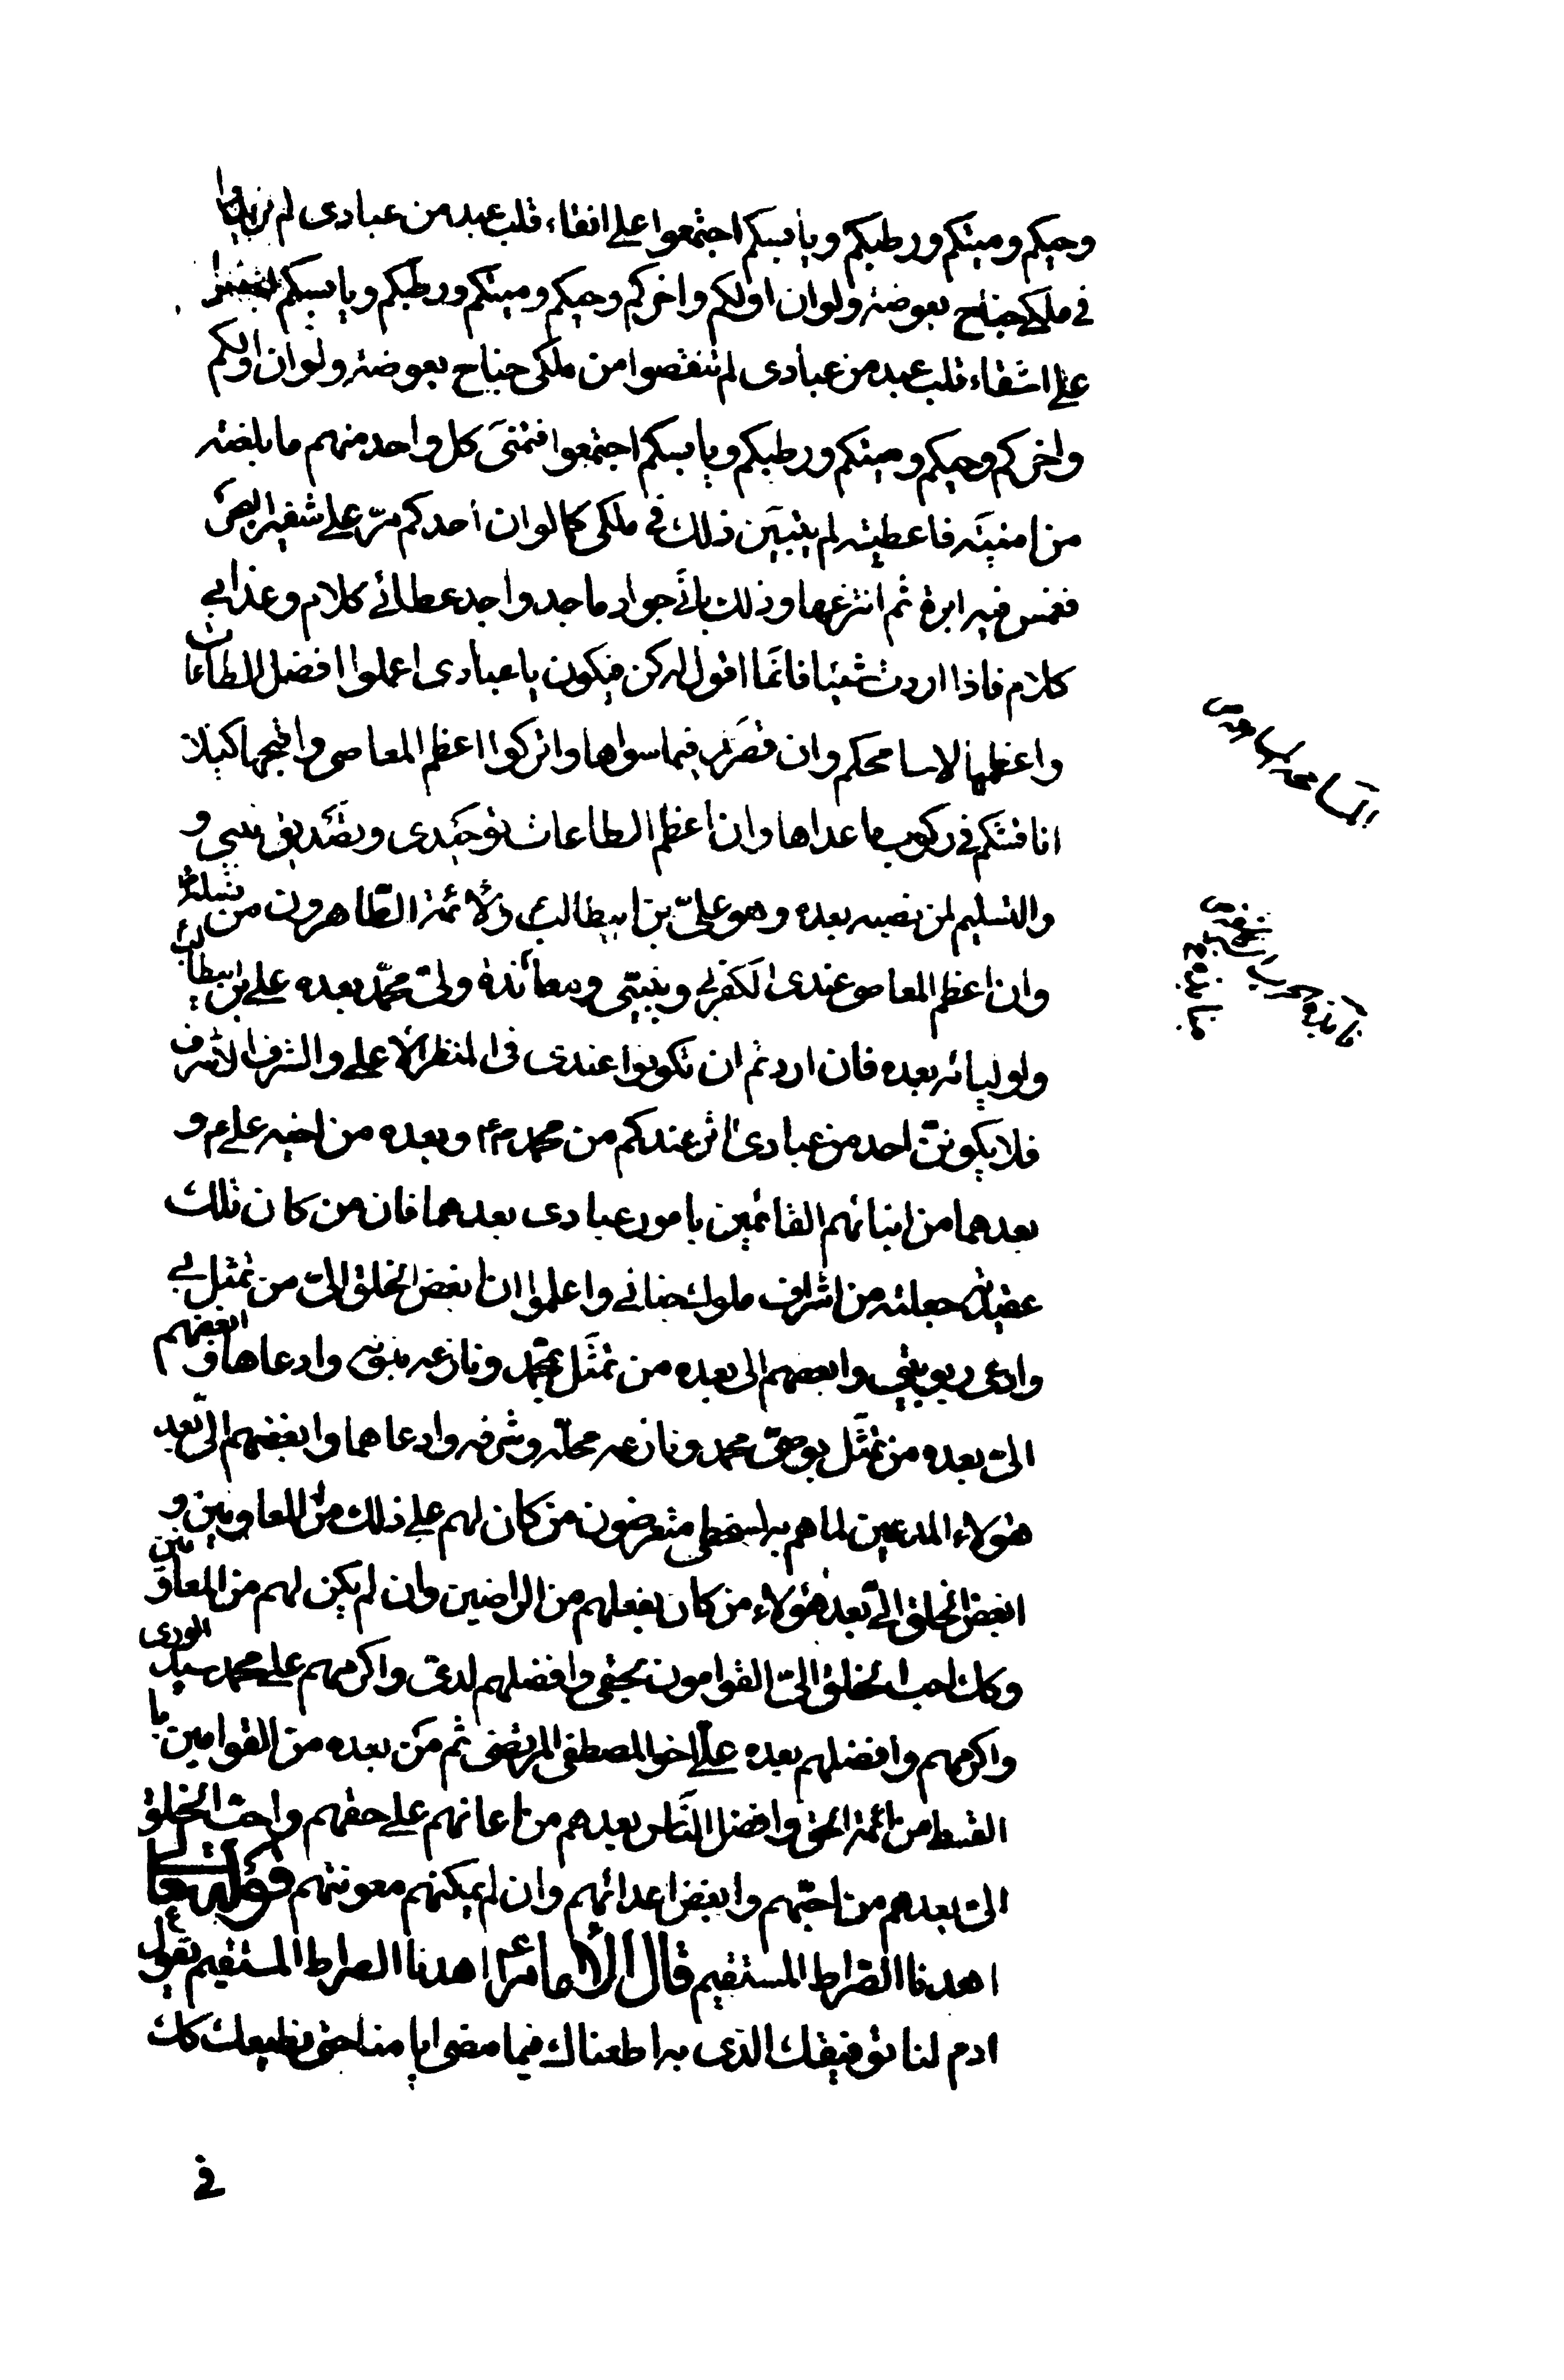 وحيكم وميتكم ورطبكم ويابسكم اجتمعوا على اتقاء قلب عبد من عبادى لم يزيدوا
فى ملكى جناح بعوضة ولو ان اولكم واخركم وحيكم وميتكم ورطبكم ويابسكم
على اشقاء قلب عبد من عبادى لم تنقصوا من ملكى جناح بعوضة ولو ان اولكم
واخركم وحيكم وميتكم ورطبكم ويابسكم اجتمعوا فتمنى كل واحد منهم ما بلغته
من امنيته فاعطيته لم يتبين ذلك فى ملكى كما لو ان احدكم مرّ على شفير البحر
فغمس فيه ابرة ثم انتزعها وذلك بانّى جواد ماجد واجد عطائى كلام وعذابى
كلام فاذا اردت شيئا فانّما اقول له كن فيكون يا عبادى اعملوا افضل الطاعات
واعظمها لاسامحكم وان قصرتم فيما سواها واتركوا اعظم المعاصى واقبحها كيلا
اناقشكم فى ركوب ما عداها وان اعظم الطاعات توحيدى وتصديق نبيى و
والتسليم لمن نصبه بعده وهو علىّ بن ابيطالب والائمة الطّاهرون من نسله
وان اعظم المعاصى عندى الكفر بى وبنبيّى ومعاندة ولىّ محمّد بعده على بن ابيطالب
واوليائه بعده فان اردتم ان تكونوا عندى فى المنظر الاعلى والشرف الاشرف
فلا يكوننّ احد من عبادى اثر عندكم من محمد ص وبعده من اخيه على ع و
بعدهما من ابنائهم القائمين بامور عبادى بعدهما فان من كان تلك
عقيدته جعلته من اشراف ملوك جنانى واعلموا ان ابغض الخلق الىّ من تمثل بى
وادعى ربوبيتى وابغضهم الى بعده من تمثّل بمحمّد ونازعه نبوته وادعاها وابغضهم
الىّ بعده من تمثّل بوصىّ محمد ونازعه محلّه وشرفه وادعاهما وابغضهم الىّ بعد
هؤلاء المدعين لما هم به لسخطى متعرضون من كان لهم على ذلك من المعاونين و
ابغض الخلق الىّ بعد هؤلاء من كان بفعلهم من الراضين وان لم يكن لهم من المعاونين
وكان احب الخلق الىّ القوامون بحقى وافضلهم لدىّ واكرمهم على محمد سيد الورى
واكرمهم وافضلهم بعده علىّ اخو المصطفى المرتضى ثم من بعده من القوامين با
القسط من ائمة الحق وافضل النّاس بعدهم من اعانهم على حقهم واحبّ الخلق
الىّ بعدهم من احبّهم وابغض اعدائهم وان لم يمكنهم معونتهم
اهدنا الصّراط المستقيم قال الامام ع اهدنا الصراط المستقيم نقول
ادم لنا توفيقك الذى به اطعناك فيما مضى ايامنا حتى نطيعك كك
فى